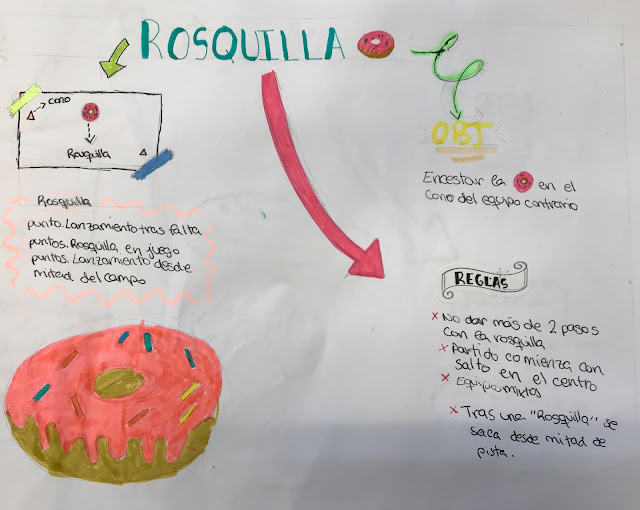 ROSQUILLA
CONO
Rosquilla
OBJ
Encestar la en el
cono del equipo contrario
Rosquilla
punto. Lanzamiento tras falta
puntos. Rosquilla en juego
puntos. Lanzamiento desde
mitad del campo
REGLAS
x No dar más de 2 pasos
con la rosquilla
x Partido comienza con
salto en el centro
x Equipos mixtos
x Tras una "Rosquilla" se
saca desde mitad de
pista.